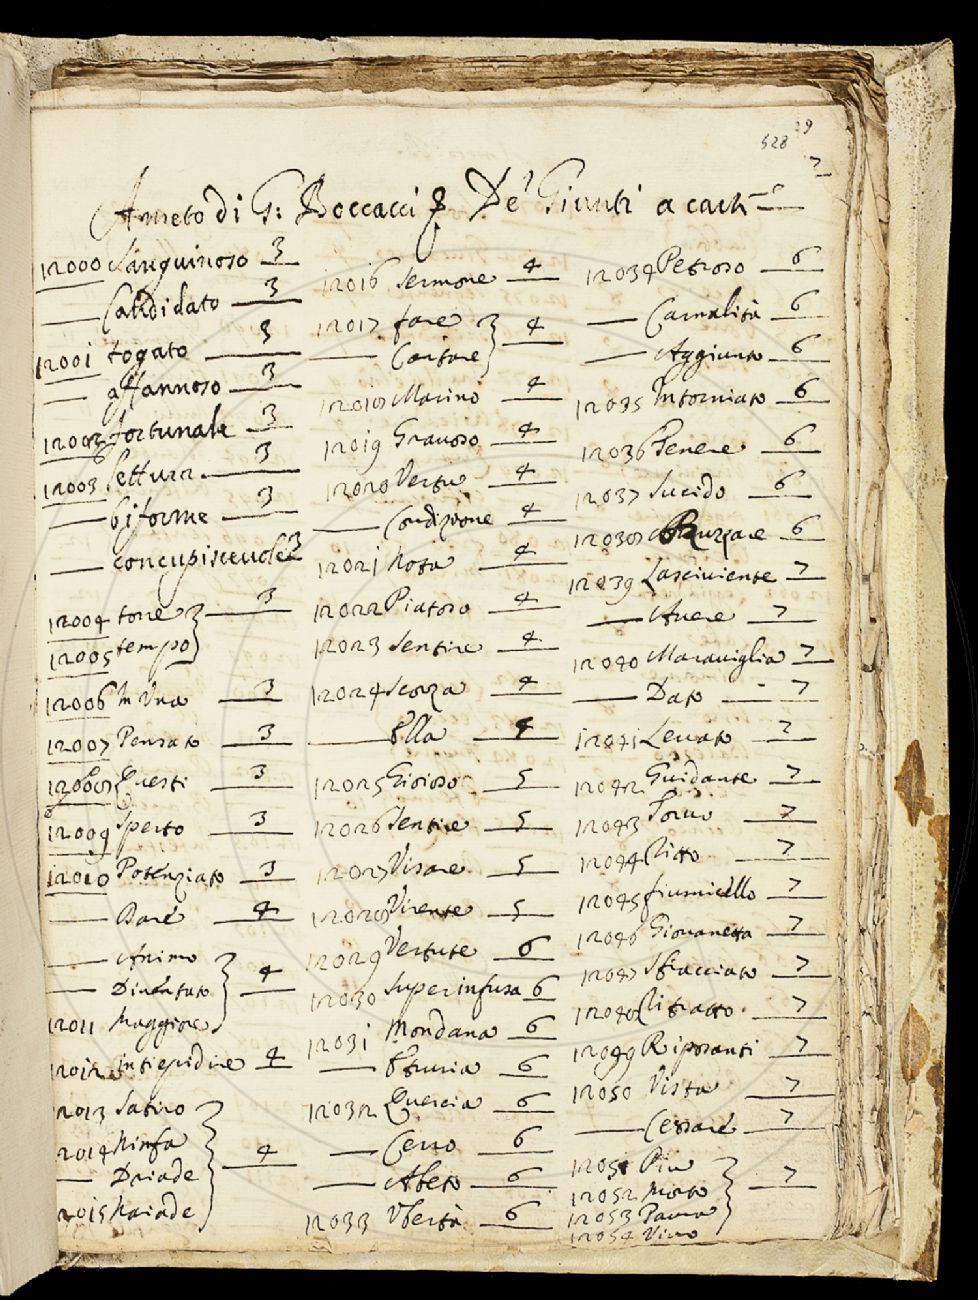 528 29
7
Ameto di G: Boccacci p De' Giunti a carte
12000 Sanguinoso 3
Candidato 3
12001 togato 3
affannoso 3
12002 fortunale 3
12003 Settura 3
biforme 3
concupiscevole 3
12004 torre } 3
12005 tempo
12006 In Una 3
12007 Pensato 3
12008 Questi 3
12009 Sperto 3
12010 Potenziato 3
Dare 4
Animo
Diventato } 4
12011 Maggiore
12012 intiepidire 4
12013 Satiro
12014 Ninfa } 4
Driade
12015 Naiade
12016 Sermone 4
12017 fare } 4
Cantare
12018 Marino 4
12019 Gravoso 4
12020 Vertù 4
Condizione 4
12021 Nota 4
12022 Piatoso 4
12023 Sentire 4
12024 Scorza 4
Ella 4
12025 Gioioso 5
12026 Sentire 5
12027 Visare 5
12028 Virente 5
12029 Vertute 6
12030 Superinfusa 6
12031 Mondana 6
Etruria 6
12032 Quercia 6
Cerro 6
Abeto 6
12033 Ubertà 6
12034 Petroso 6
Carnalità 6
Aggiunto 6
12035 Intorniato 6
12036 Tenere 6
12037 Lucido 6
12038 6
12039 Lasciviente 7
Avere 7
12040 Maraviglia 7
Dato 7
12041 Levato 7
12042 Guidante 7
12043 Torvo 7
12044 Ritto 7
12045 fiumicello 7
12046 Giovanetta 7
12047 Stracciato 7
12048 Ritratto 7
12049 Riposanti 7
12050 Vista 7
Cessare 7
12051 Piu
12052 Moto } 7
12053 Paura
12054 Vivo